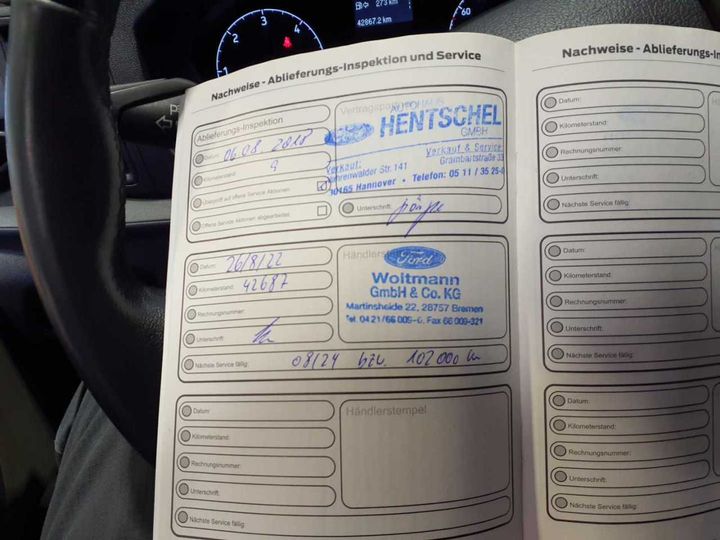 4
3
2
1
0
273 km
42867.2 km
60
Nachweise - Ablieferungs-Inspektion und Service
Ablieferungs-Inspektion
Datum: 06.08.2018
Kilometerstand: 9
Überprüft auf offene Service Aktionen
Offene Service Aktionen abgearbeitet
Vertragspartner
AUTOHAUS
HENTSCHEL
GMBH
Verkauf: Verkauf & Service
Vahrenwalder Str. 141 Grambartstraße 33
30165 Hannover • Telefon: 05 11 / 35 25-0
Unterschrift:
Datum: 26/8/22
Kilometerstand: 42687
Rechnungsnummer:
Unterschrift:
Händlerstempel
Ford
Woltmann
GmbH & Co. KG
Martinsheide 22, 28757 Bremen
Tel. 04 21/66 009-0, Fax 66 009-321
Nächste Service fällig: 08/24 bzw. 102000 km
Datum:
Kilometerstand:
Rechnungsnummer:
Unterschrift:
Nächste Service fällig:
Händlerstempel
Nachweise - Ablieferungs-In
Datum:
Kilometerstand:
Rechnungsnummer:
Unterschrift:
Nächste Service fällig:
Datum:
Kilometerstand:
Rechnungsnummer:
Unterschrift:
Nächste Service fällig:
Datum:
Kilometerstand:
Rechnungsnummer:
Unterschrift:
Nächste Service fällig: